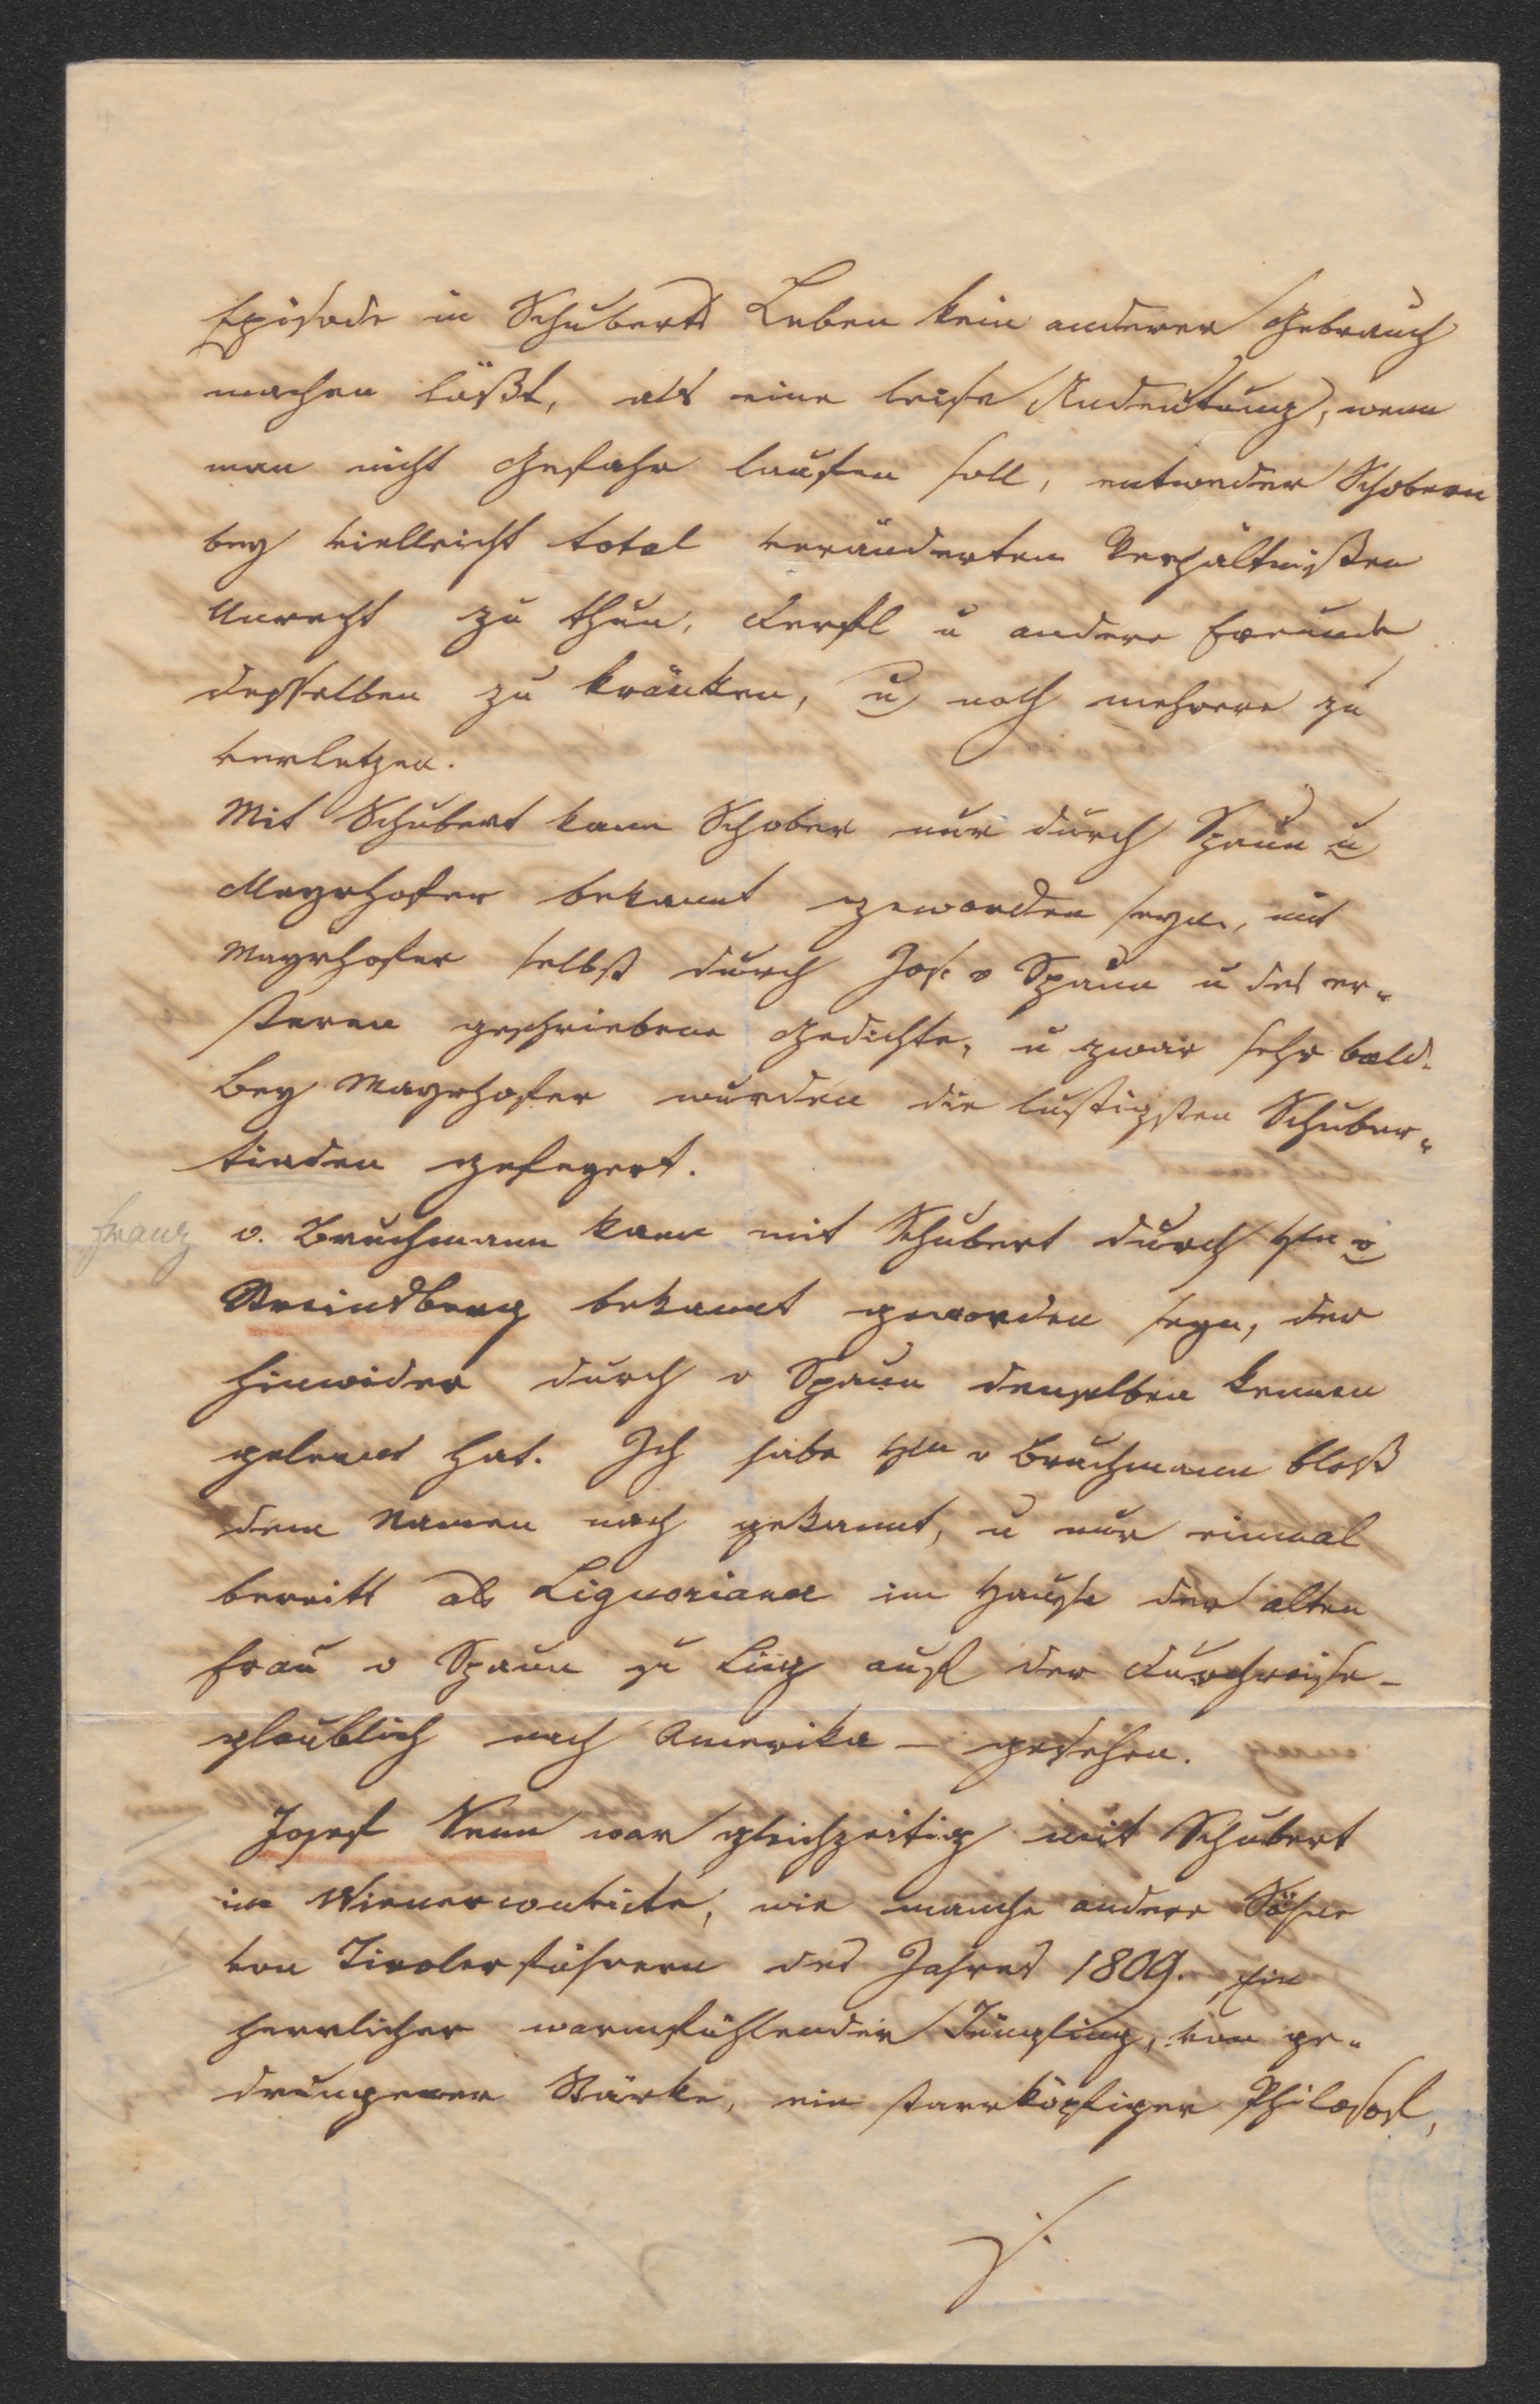 Episode in Schuberts Leben kein anderer Gebrauch
machen läßt, als eine leise Andeutung, wenn
man nicht Gefahr laufen soll, entweder Schobern
bey vielleicht total veränderten Verhältnißen
Unrecht zu thun, Derffl u andere Freunde
desselben zu kränken, u noch mehrere zu
verletzen.
Mit Schubert kann Schober nur durch Spaun u
Mayrhofer bekannt geworden seyn, mit
Mayrhofer selbst durch Jos. v Spaun u des er-
steren geschriebene Gedichte, u zwar sehr bald.
Bey Mayrhofer wurden die lustigsten Schuber-
tiaden gefeyert.
Franz v. Bruchmann kann mit Schubert durch Hrn v
Streinsberg bekannt geworden seyn, der
hinwider durch v Spaun denselben kennen
gelernt hat. Ich habe Hrn v Bruchmann bloß
dem Namen nach gekannt, u nur einmal
bereits als Liguorianer im Hause der alten
Frau v Spaun zu Linz auf der Durchreise -
glaublich nach Amerika - gesehen.
Josef Senn war gleichzeitig mit Schubert
im Wienerconvicte, wie manche andere Söhne
von Tirolerführern des Jahres 1809. Ein
herrlicher warmfühlender Jüngling, von ge-
drungener Stärke, ein starrköpfiger Philosof,
./.